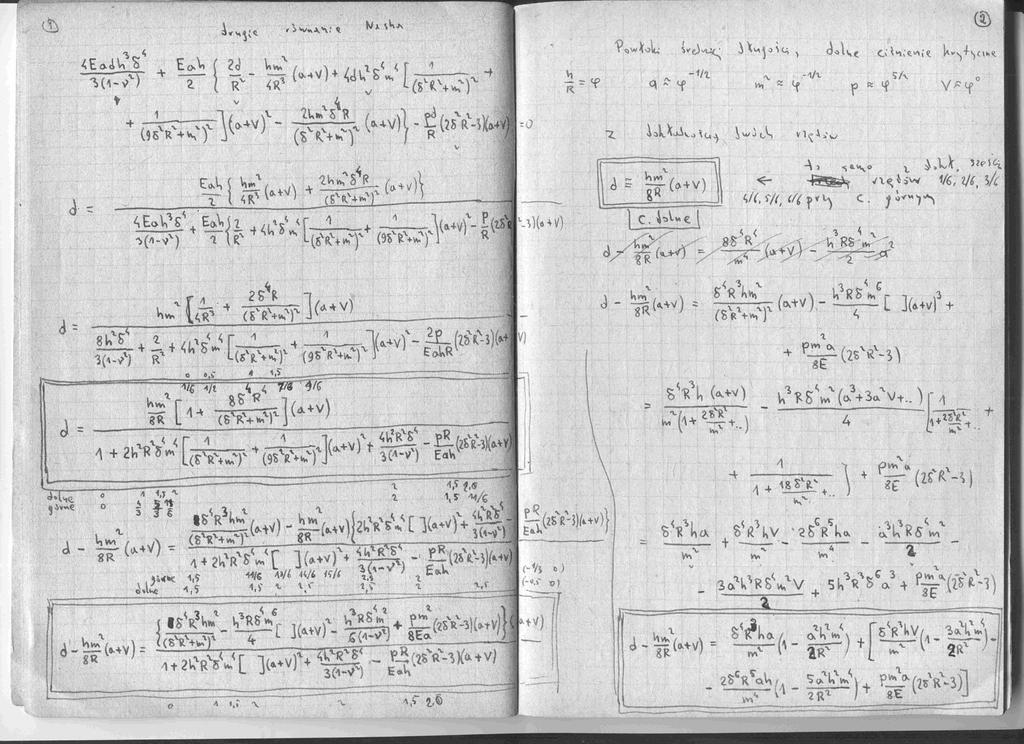 1
drugie równanie Nasha
4Eadh³δ⁴/3(1-ν²) + Eah/2 { 2d/R² - hm²/4R³ (a+V) + 4dh²δ⁴m⁴ [ 1/(δ²R²+m²)² +
+ 1/(9δ²R²+m²)² ](a+V)² - 2hm²δ⁴R/(δ²R²+m²)² (a+V) } - pd/R (2δ²R²-3)(a+V) = 0
d = Eah/2 { hm²/4R³ (a+V) + 2hm²δ⁴R/(δ²R²+m²)² (a+V) } / 4Eah³δ⁴/3(1-ν²) + Eah/2 { 2/R² + 4h²δ⁴m⁴ [ 1/(δ²R²+m²)² + 1/(9δ²R²+m²)² ](a+V)² - p/R (2δ²R²-3)(a+V)
d = hm² [ 1/4R³ + 2δ⁴R/(δ²R²+m²)² ](a+V) / 8h²δ⁴/3(1-ν²) + 2/R² + 4h²δ⁴m⁴ [ 1/(δ²R²+m²)² + 1/(9δ²R²+m²)² ](a+V)² - 2p/EahR (2δ²R²-3)(a+V)
0 0,5 1 1,5
1/6 1/2 7/6 9/6
d = hm²/8R [ 1 + 8δ⁴R⁴/(δ²R²+m²)² ](a+V) / 1 + 2h²R²δ⁴m⁴ [ 1/(δ²R²+m²)² + 1/(9δ²R²+m²)² ](a+V)² + 4h²R²δ⁴/3(1-ν²) - pR/Eah (2δ²R²-3)(a+V)
dolne 0 1 1,5 2 2 1,5 2,5
górne 0 2 1,5 11/6
d - hm²/8R (a+V) = δ⁴R³hm²/(δ²R²+m²)² (a+V) - hm²/8R (a+V) { 2h²R²δ⁴m⁴ [ ](a+V)² + 4h²R²δ⁴/3(1-ν²) - pR/Eah (2δ²R²-3)(a+V) } / 1 + 2h²R²δ⁴m⁴ [ ](a+V)² + 4h²R²δ⁴/3(1-ν²) - pR/Eah (2δ²R²-3)(a+V)
górne 1,5 11/6 13/6 14/6 15/6
dolne 1,5 1,5 2 2,5 2 2,5 2,5
d - hm²/8R (a+V) = { δ⁴R³hm²/(δ²R²+m²)² - h³Rδ⁴m⁶/4 [ ](a+V)² - h³Rδ⁴m²/6(1-ν²) + pm²/8Ea (2δ²R²-3)(a+V) } (a+V) / 1 + 2h²R²δ⁴m⁴ [ ](a+V)² + 4h²R²δ⁴/3(1-ν²) - pR/Eah (2δ²R²-3)(a+V)
0 1 1,5 2 2 1,5 2,5
2
Powłoki średniej długości, dolne ciśnienie krytyczne
h/R = φ a ≈ φ^-1/2 m² ≈ φ^-1/2 p ≈ φ^5/2 V ≈ φ⁰
z dokładnością dwóch rzędów
d ≡ hm²/8R (a+V) ← to samo z dokł. sześciu
rzędów 1/6, 2/6, 3/6
4/6, 5/6, 6/6 przy c. górnym
c. dolne
d - hm²/8R (a+V) = 8δ⁴R⁴/m⁴ (a+V) - h³Rδ⁴m²/2 a²
d - hm²/8R (a+V) = δ⁴R³hm²/(δ²R²+m²)² (a+V) - h³Rδ⁴m⁶/4 [ ](a+V)³ +
+ pm²a/8E (2δ²R²-3)
= δ⁴R³h (a+V)/m²(1+ 2δ²R²/m² +..) - h³Rδ⁴m²(a³+3a²V+..)/4 [ 1/1+ 2δ²R²/m² +.. +
+ 1/1+ 18δ²R²/m² +.. ] + pm²a/8E (2δ²R²-3)
= δ⁴R³ha/m² + δ⁴R³hV/m² - 2δ⁶R⁵ha/m⁴ - a³h³Rδ⁴m²/2 -
- 3a²h³Rδ⁴m²V/2 + 5h³R³δ⁶a³ + pm²a/8E (2δ²R²-3)
d - hm²/8R (a+V) = δ⁴R³ha/m² (1 - a²h²m⁴/2R²) + [ δ⁴R³hV/m² (1 - 3a²h²m⁴/2R²) -
- 2δ⁶R⁵ah/m⁴ (1 - 5a²h²m⁴/2R²) + pm²a/8E (2δ²R²-3) ]